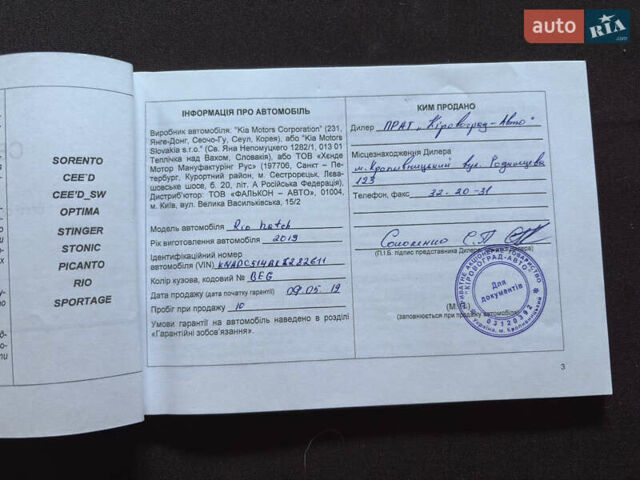 auto RIA .com
SORENTO
CEE'D
CEE'D_SW
OPTIMA
STINGER
STONIC
PICANTO
RIO
SPORTAGE
ІНФОРМАЦІЯ ПРО АВТОМОБІЛЬ
Виробник автомобіля: "Kia Motors Corporation" (231,
Янге-Донг, Сеочо-Гу, Сеул, Корея), або "Kia Motors
Slovakia s.r.o." (Св. Яна Непомуцкего 1282/1, 013 01
Теплічка над Вахом, Словакія), або ТОВ «Хенде
Мотор Мануфактурінг Рус» (197706, Санкт – Пе-
тербург, Курортний район, м. Сестрорецьк, Лєва-
шовське шосе, б. 20, літ. А Російська Федерація).
Дистриб'ютор: ТОВ «ФАЛЬКОН – АВТО», 01004,
м. Київ, вул. Велика Васильківська, 15/2
Модель автомобіля Rio hatch
Рік виготовлення автомобіля 2019
Ідентифікаційний номер
автомобіля (VIN)
Колір кузова, кодовий № BEG
Дата продажу (дата початку гарантії) 09.05.19
Пробіг при продажу 10
Умови гарантії на автомобіль наведено в розділі
«Гарантійні зобов'язання».
КИМ ПРОДАНО
Дилер ПРАТ „Кіровоград-Авто"
Місцезнаходження Дилера
м. Кропивницький вул.
123
Телефон, факс 32-20-31
(П.І.Б. підпис представника Дилера)
(М.П.)
(заповнюється при продажу автомобіля)
ПРИВАТНЕ АКЦІОНЕРНЕ ТОВАРИСТВО
«КІРОВОГРАД-АВТО»
Для
документів
03120392
Україна, м. Кропивницький
3